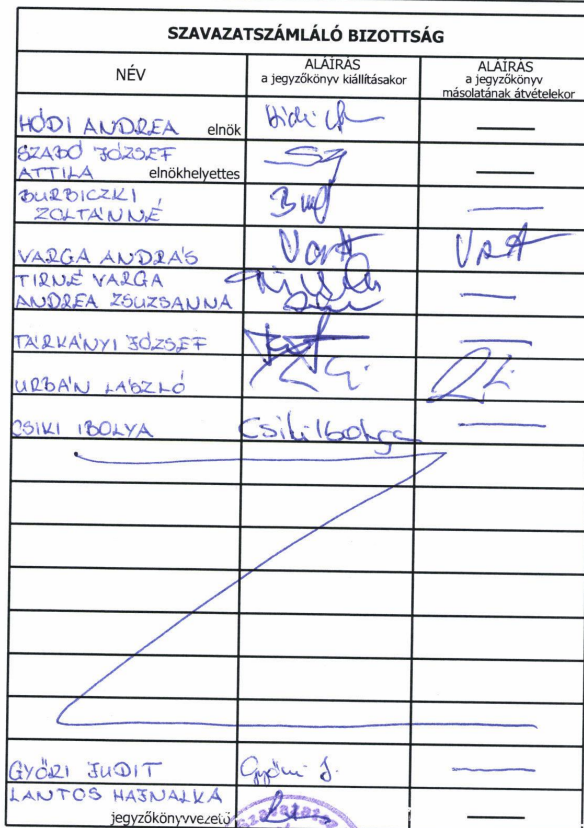 SZAVAZATSZÁMLÁLÓ BIZOTTSÁG
NÉV
ALÁÍRÁS
a jegyzőkönyv kiállításakor
ALÁÍRÁS
a jegyzőkönyv
másolatának átvételekor
HÓDI ANDREA elnök
SZABÓ JÓZSEF
ATTILA elnökhelyettes
BURBICZKI
ZOLTÁNNÉ
VARGA ANDRÁS
TIRNÉ VARGA
ANDREA ZSUZSANNA
TÁRKÁNYI JÓZSEF
URBÁN LÁSZLÓ
CSIKI IBOLYA Csiki Ibolya
GYŐRI JUDIT Győri J.
LANTOS HAJNALKA
jegyzőkönyvvezető